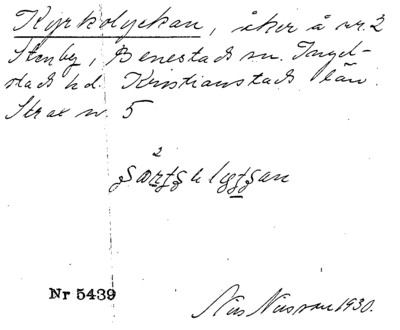 Kyrkolyckan, åker å nr. 2
Stenby, Benestads sn. Ingel-
stads hd. Kristianstads län.
Strax n. 5
Nr 5439
Nils Nilsson 1930.